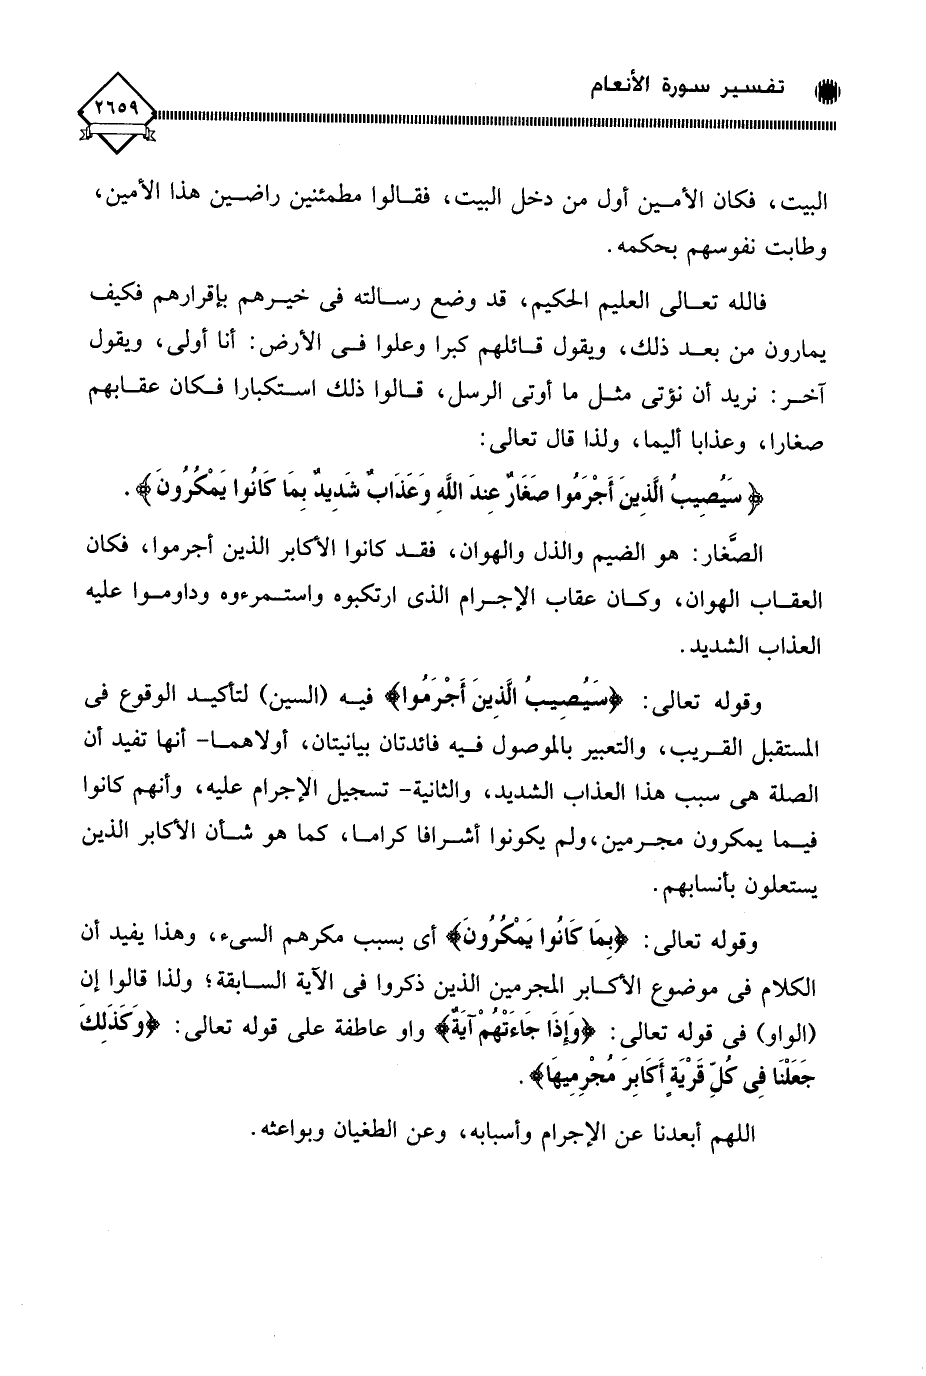 تفسير سورة الأنعام
٢٦٥٩
البيت، فكان الأمين أول من دخل البيت، فقالوا مطمئنين راضين هذا الأمين،
وطابت نفوسهم بحكمه.
فالله تعالى العليم الحكيم، قد وضع رسالته فى خيرهم بإقرارهم فكيف
يمارون من بعد ذلك، ويقول قائلهم كبرا وعلوا فى الأرض: أنا أولى، ويقول
آخر: نريد أن نؤتى مثل ما أوتى الرسل، قالوا ذلك استكبارا فكان عقابهم
صغارا، وعذابا أليما، ولذا قال تعالى:
﴿سَيُصِيبُ الَّذِينَ أَجْرَمُوا صَغَارٌ عِندَ اللَّهِ وَعَذَابٌ شَدِيدٌ بِمَا كَانُوا يَمْكُرُونَ﴾.
الصَّغار: هو الضيم والذل والهوان، فقد كانوا الأكابر الذين أجرموا، فكان
العقاب الهوان، وكان عقاب الإجرام الذى ارتكبوه واستمرءوه وداوموا عليه
العذاب الشديد.
وقوله تعالى: ﴿سَيُصِيبُ الَّذِينَ أَجْرَمُوا﴾ فيه (السين) لتأكيد الوقوع فى
المستقبل القريب، والتعبير بالموصول فيه فائدتان بيانيتان، أولاهما- أنها تفيد أن
الصلة هى سبب هذا العذاب الشديد، والثانية- تسجيل الإجرام عليه، وأنهم كانوا
فيما يمكرون مجرمين، ولم يكونوا أشرافا كراما، كما هو شأن الأكابر الذين
يستعلون بأنسابهم.
وقوله تعالى: ﴿بِمَا كَانُوا يَمْكُرُونَ﴾ أى بسبب مكرهم السيء، وهذا يفيد أن
الكلام فى موضوع الأكابر المجرمين الذين ذكروا فى الآية السابقة؛ ولذا قالوا إن
(الواو) فى قوله تعالى: ﴿وَإِذَا جَاءَتْهُمْ آيَةٌ﴾ واو عاطفة على قوله تعالى: ﴿وَكَذَلِكَ
جَعَلْنَا فِى كُلِّ قَرْيَةٍ أَكَابِرَ مُجْرِمِيهَا﴾.
اللهم أبعدنا عن الإجرام وأسبابه، وعن الطغيان وبواعثه.